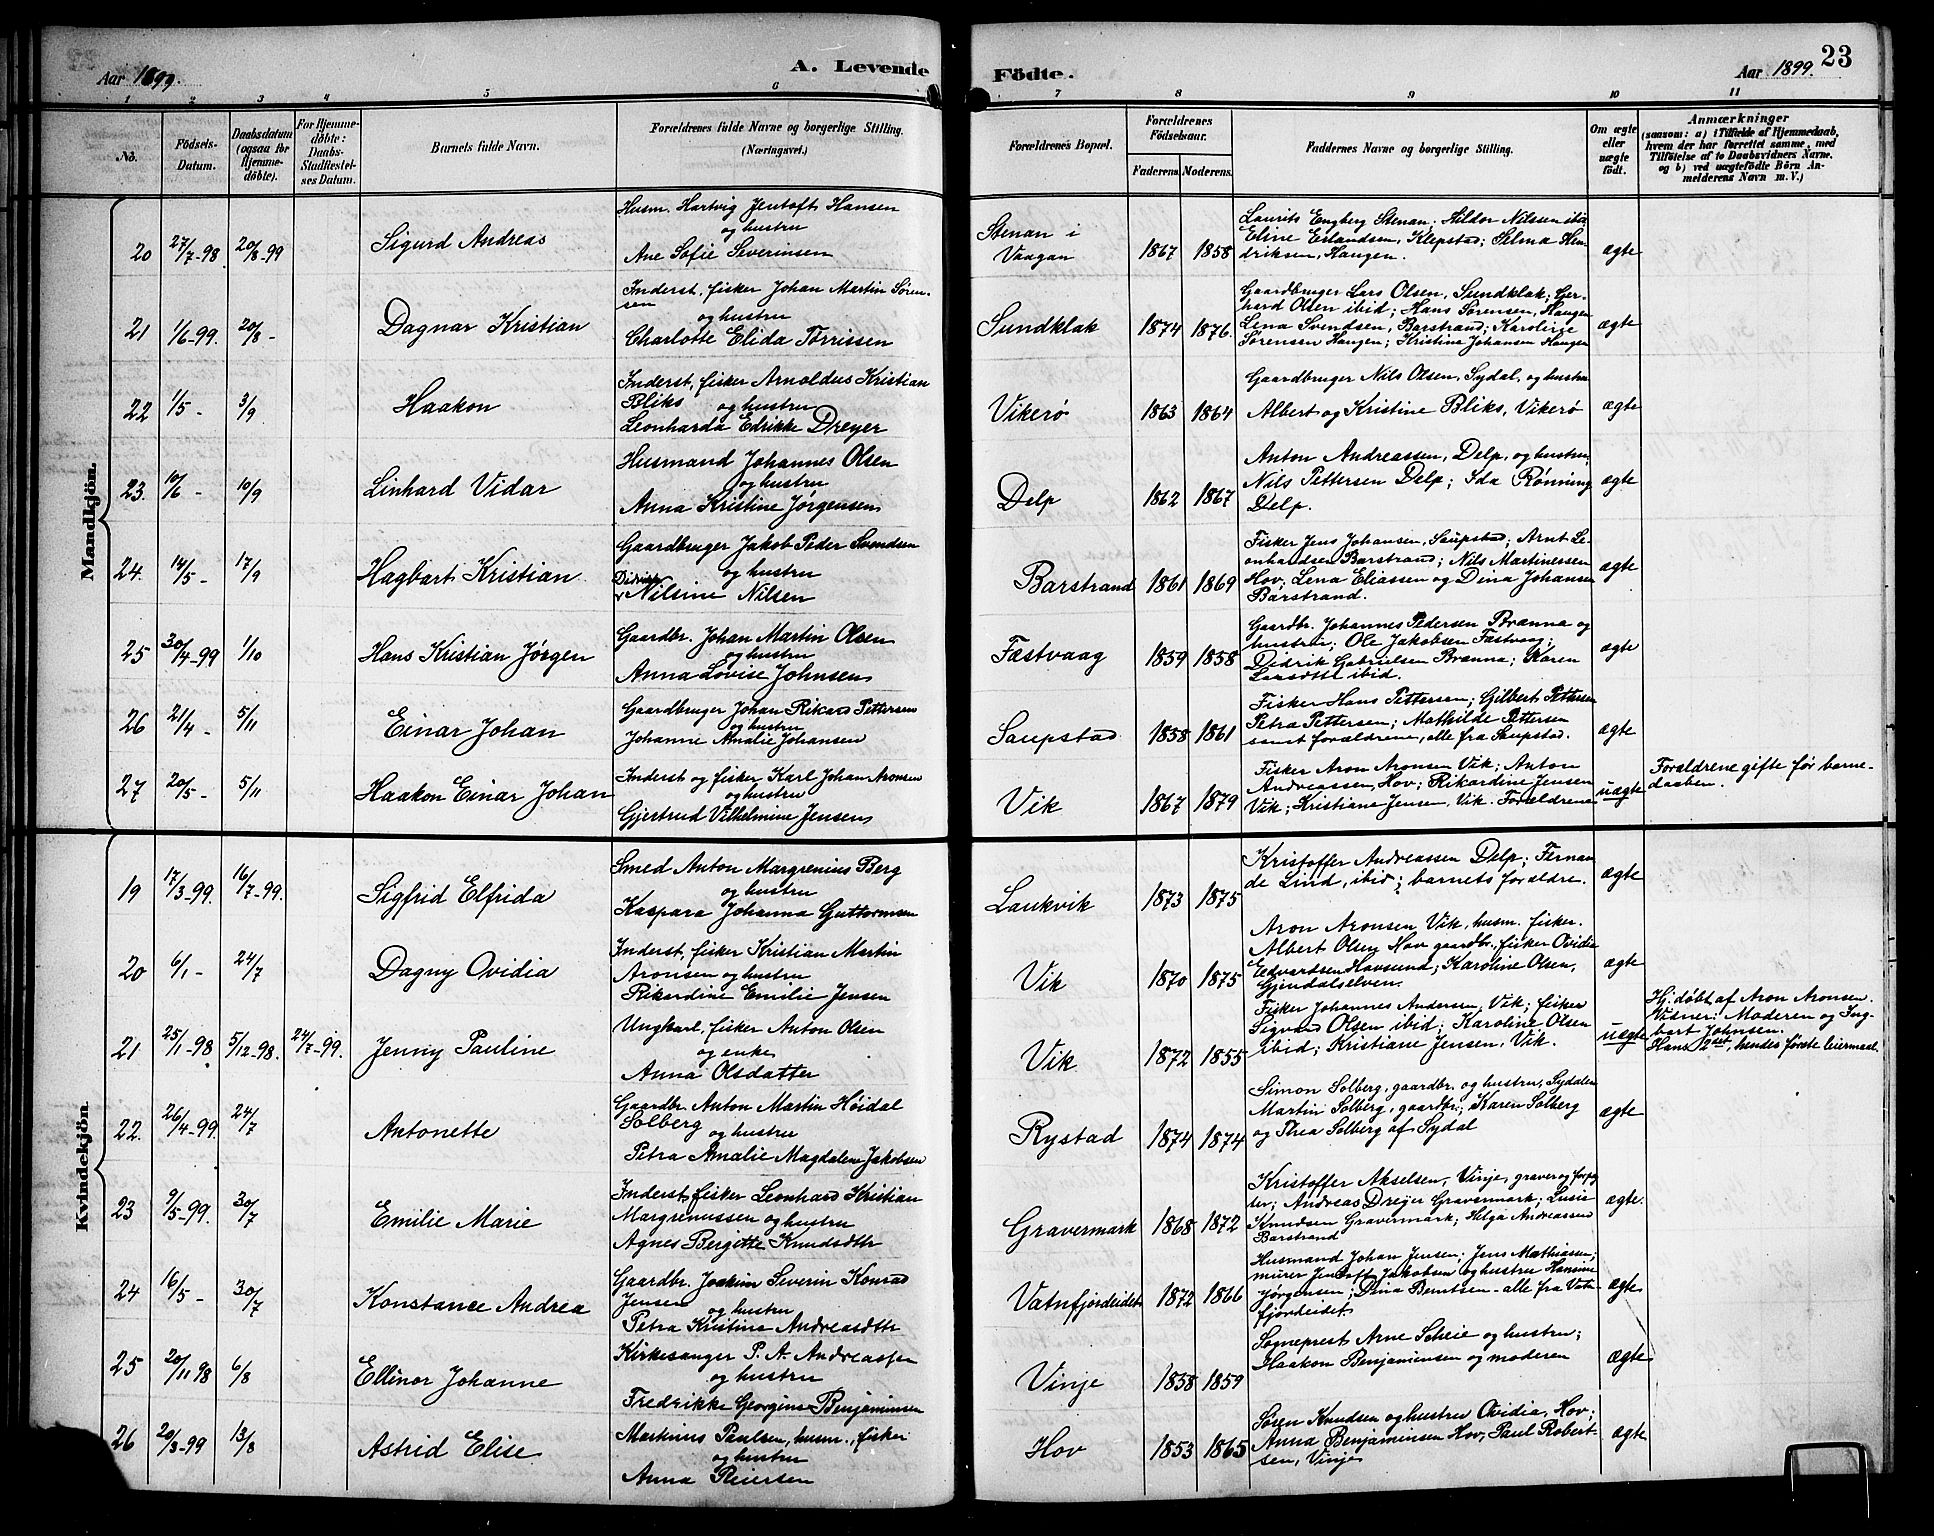 Aar 1899.
A. Levende
Födte.
Aar 1899.
23
1 2 3 4 5 6 7 8 9 10 11
No.
Födsels-
Datum.
Daabsdatum
(ogsaa for
Hjemme-
döbte).
For Hjemme-
döbte:
Daabs-
Stadfæstel-
ses Datum.
Barnets fulde Navn.
Forældrenes fulde Navne og borgerlige Stilling.
(Næringsvei.)
Forældrenes Bopæl.
Forældrenes
Födselsaar.
Faderens. Moderens.
Faddernes Navne og borgerlige Stilling.
Om ægte
eller
uægte
födt.
Anmærkninger
(saasom: a) i Tilfælde af Hjemmedaab,
hvem der har forrettet samme, med
Tilföielse af to Daabsvidners Navne.
og b) ved uægtefödte Börn An-
melderens Navn m. V.)
Mandkjön.
20 27/7-98. 20/8-99 Sigurd Andreas
Husm. Hartvig Jentoft Hansen
og hustru
Ane Sofie Severinsen
Stenan i
Vaagan
1867 1858
Laurits Engberg Stenan; Hildor Nilsen ibid
Eline Erlandsen, Klepstad; Selma Hen-
driksen, Haugen.
ægte
21 1/6-99. 20/8- Dagnar Kristian
Inderst, fisker Johan Martin Søren-
sen
og hustru
Charlotte Elida Tørrissen
Sundklak
1874 1876.
Gaardbruger Lars Olsen, Sundklak; Ger-
hard Olsen ibid; Hans Sørensen, Haugen
Lena Svendsen, Barstrand; Karoline
Sørensen Haugen; Kristina Johansen Haugen
ægte
22 1/5- 3/9 Haakon
Inderst, fisker Arnoldus Kristian
Bliks og hustru
Leonharda Edrikke Dreyer
Vikerø
1863 1864
Gaardbruger Nils Olsen, Sydal, og hustru
Albert og Kristine Bliks, Vikerø
ægte
23. 10/6- 10/9 Linhard Vidar
Husmand Johannes Olsen
og hustru
Anna Kristine Jørgensen
Delp
1862 1867
Anton Andreassen, Delp, og hustru,
Nils Pettersen Delp; Ida Rønning
Delp.
ægte
24. 14/5- 17/9 Hagbart Kristian
Gaardbruger Jakob Peder Svendsen
og hustru
Nilsine Nilsen
Barstrand
1861 1869
Fisker Jens Johansen, Saupstad; Arnt Le-
onhardsen Barstrand; Nils Martinessen
Hov; Lena Eliassen og Dina Johansen
Barstrand.
ægte
25 30/4-99 1/10 Hans Kristian Jørgen
Gaardbr. Johan Martin Olsen
og hustru
Anna Lovise Johnsen
Fæstvaag
1859 1858
Gaardbr. Johannes Pedersen Brænna og
hustru; Ole Jakobsen Fæstvaag;
Didrik Gabrielsen Brænna; Karen
Larsdttr ibid.
ægte
26 21/4- 5/11 Einar Johan
Gaardbruger Johan Rikard Pettersen
og hustru
Johanne Amalie Johansen
Saupstad
1858 1861
Fisker Hans Pettersen; Gilbert Pettersen
Petra Pettersen; Mathilde Pettersen
samt forældrene, alle fra Saupstad.
ægte
27 20/5- 5/11 Haakon Einar Johan
Inderst og fisker Karl Johan Aronsen
og hustru
Gjertrud Vilhelmine Jensen
Vik
1867 1879
Fisker Aron Aronsen Vik; Anton
Andreassen, Hov; Rikardine Jensen
Vik; Kristiane Jensen, Vik. Forældrene
uægte
Forældrene gifte før barne-
daaben.
Kvindekjön.
19 17/3-99. 16/7-99. Sigfrid Elfrida
Smed Anton Margrenius Berg
og hustru
Kaspara Johanna Guttormsen
Laukvik
1873 1875
Kristoffer Andreassen Delp; Fernan
de Lind, ibid; barnets forældre.
ægte
20 6/1- 24/7 Dagny Ovidia
Inderst, fisker Kristian Martin
Aronsen og hustru
Rikardine Emilie Jensen
Vik
1870 1875
Aron Aronsen Vik, husm. fisker.
Albert Olsen Hov gaardbr., fisker Ovidia
Edvardsen Havsund; Karoline Olsen,
Gjindalselven.
ægte
21 25/11-98 5/12-98. 24/7-99. Jenny Pauline
Ungkarl, fisker Anton Olsen
og enke
Anna Olsdatter
Vik
1872 1855
Fisker Johannes Andersen, Vik; fisker
Sigvard Olsen ibid; Karoline Olsen
ibid; Kristiane Jensen, Vik.
uægte
Hj. døbt af Aron Aronsen.
Vidner: Moderen og Ing-
bart Johnsen.
Hans 2det, hendes første leiermaal.
22. 26/4-99. 24/7 Antonette
Gaardbr. Anton Martin Høidal
Solberg og hustru
Petra Amalie Magdalene Jakobsen
Rystad
1874 1874
Simon Solberg, gaardbr. og hustru, Sydalen
Martin Solberg, gaardbr.; Karen Solberg
og Thea Solberg af Sydal
ægte
23 9/5-99. 30/7 Emilie Marie
Inderst, fisker Leonhard Kristian
Margrenussen og hustru
Agnes Bergitte Knudsdttr
Gravermark
1868 1872
Kristoffer Akselsen, Vinje, graver og forpag
ter; Andreas Dreyer Gravermark; Lusie
Knudsen Gravermark; Helga Andreassen
Barstrand
ægte.
24 16/5- 30/7 Konstance Andrea
Gaardbr. Joakim Severin Konrad
Jensen
og hustru
Petra Kristine Andreasdttr
Vatnfjordeidet
1872 1866
Husmand Johan Jensen; Jens Mathiassen;
murer Jentoft Jakobsen og hustru Hansine
Jørgensen; Dina Berntsen - alle fra Vatn-
fjordeidet
ægte
25 20/11 98 6/8 Ellinor Johanne
Kirkesanger P. A. Andreassen
og hustru
Fredrikke Georgine Benjaminsen
Vinje
1858 1859
Sogneprest Arne Scheie og hustru;
Haakon Benjaminsen og moderen
ægte
26 20/3-99 13/8 Astrid Elise
Martinus Paulsen, husm., fisker
og hustru
Anna Reiersen
Hov
1853 1865
Søren Knudsen og hustru Ovidia, Hov;
Anna Benjaminsen Hov, Paul Robert-
sen, Vinje
ægte